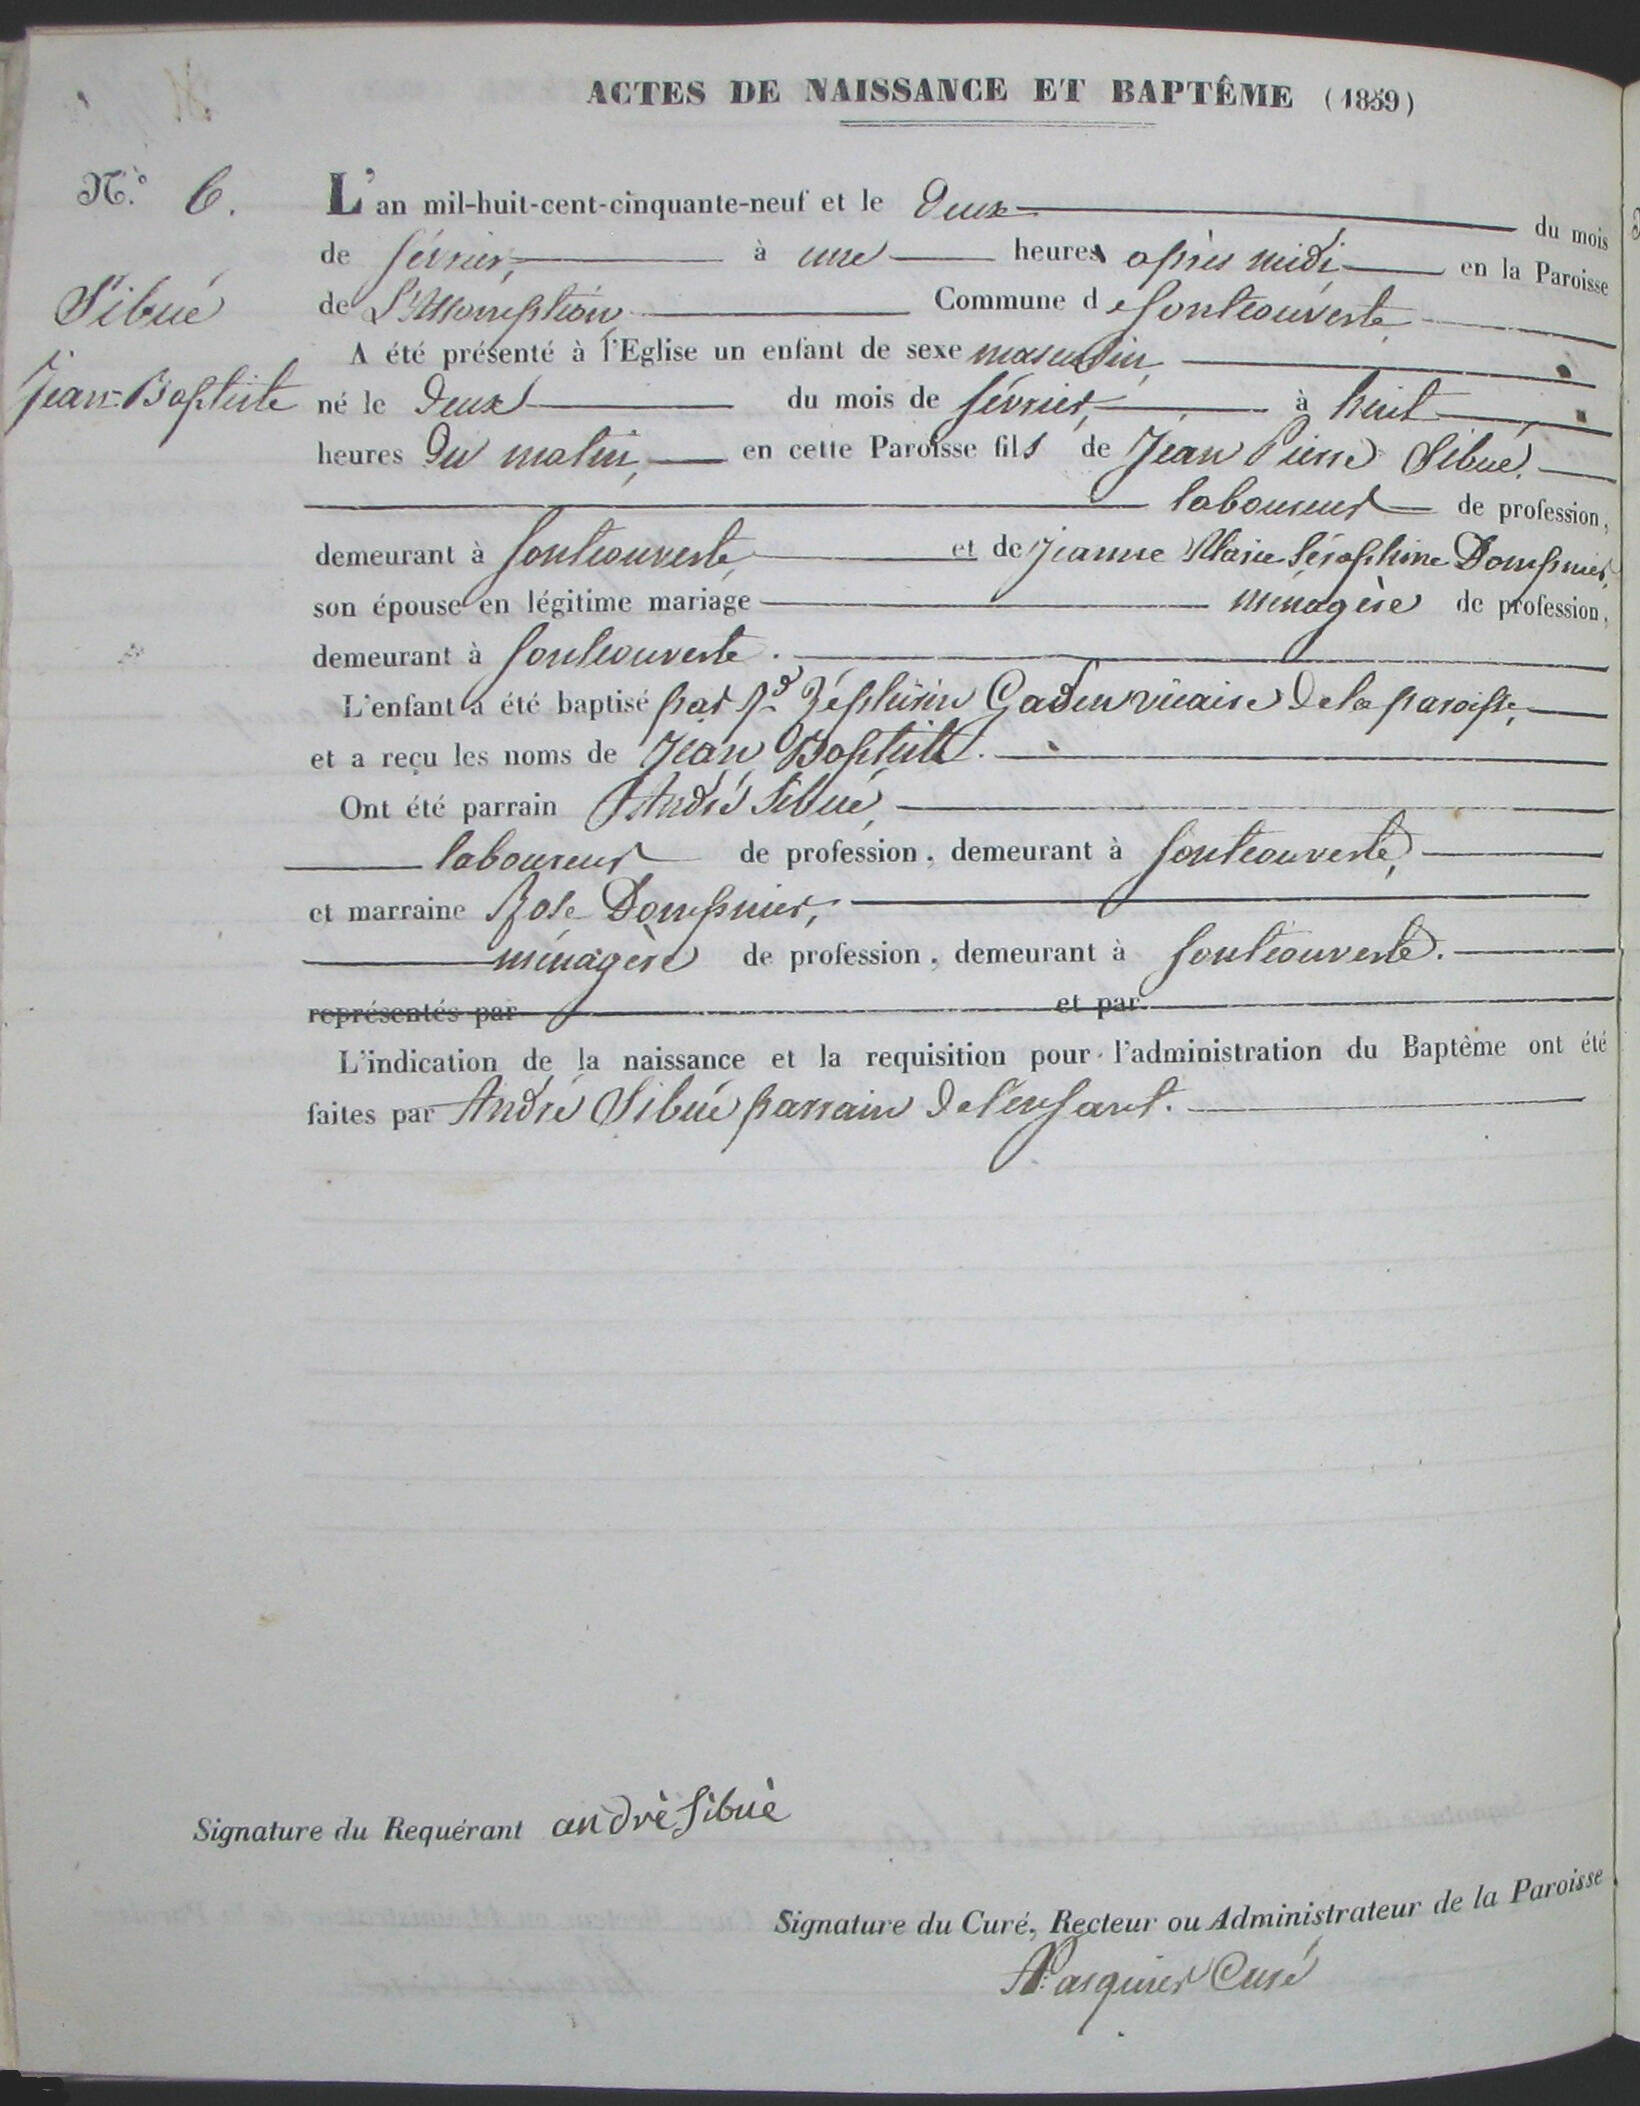 ACTES DE NAISSANCE ET BAPTÊME (1859)
N.° 6.
Sibué
Jean-Baptiste
L'an mil-huit-cent-cinquante-neuf et le deux du mois
de février, à une heures après midi en la Paroisse
de L'Assomption Commune de Fontcouverte
A été présenté à l'Eglise un enfant de sexe masculin,
né le deux du mois de février, à huit
heures du matin, en cette Paroisse fils de Jean Pierre Sibué,
laboureur de profession,
demeurant à fontcouverte, et de Jeanne Marie Séraphine Dompnier,
son épouse en légitime mariage ménagère de profession,
demeurant à fontcouverte.
L'enfant a été baptisé par Rd Zéphirin Gaden vicaire de la paroisse,
et a reçu les noms de Jean Baptiste.
Ont été parrain André Sibué,
laboureur de profession, demeurant à fontcouverte,
et marraine Rose Dompnier,
ménagère de profession, demeurant à fontcouverte.
représentés par et par
L'indication de la naissance et la requisition pour l'administration du Baptême ont été
faites par André Sibué parrain de l'enfant.
Signature du Requérant andrè Sibuè
Signature du Curé, Recteur ou Administrateur de la Paroisse
Pasquier Curé